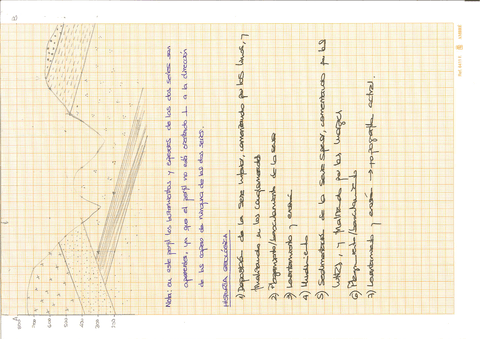 Nota: en este perfil los buzamientos y espesores de las dos series son
aparentes, ya que el perfil no está orientado ⊥ a la dirección
de las capas de ninguna de las dos series.
HISTORIA GEOLÓGICA
1) Deposición de la Serie Inferior, comenzando por las limos, y
finalizando en los conglomerados
2) Plegamiento/basculamiento de la serie
3) Levantamiento y erosión
4) Hundimiento
5) Sedimentación de la Serie Superior, comenzando por las
y finalizando por las margas
6) Plegamiento/basculamiento
7) Levantamiento y erosión → topografía actual.
A
800
700
600
500
400
300
200
B